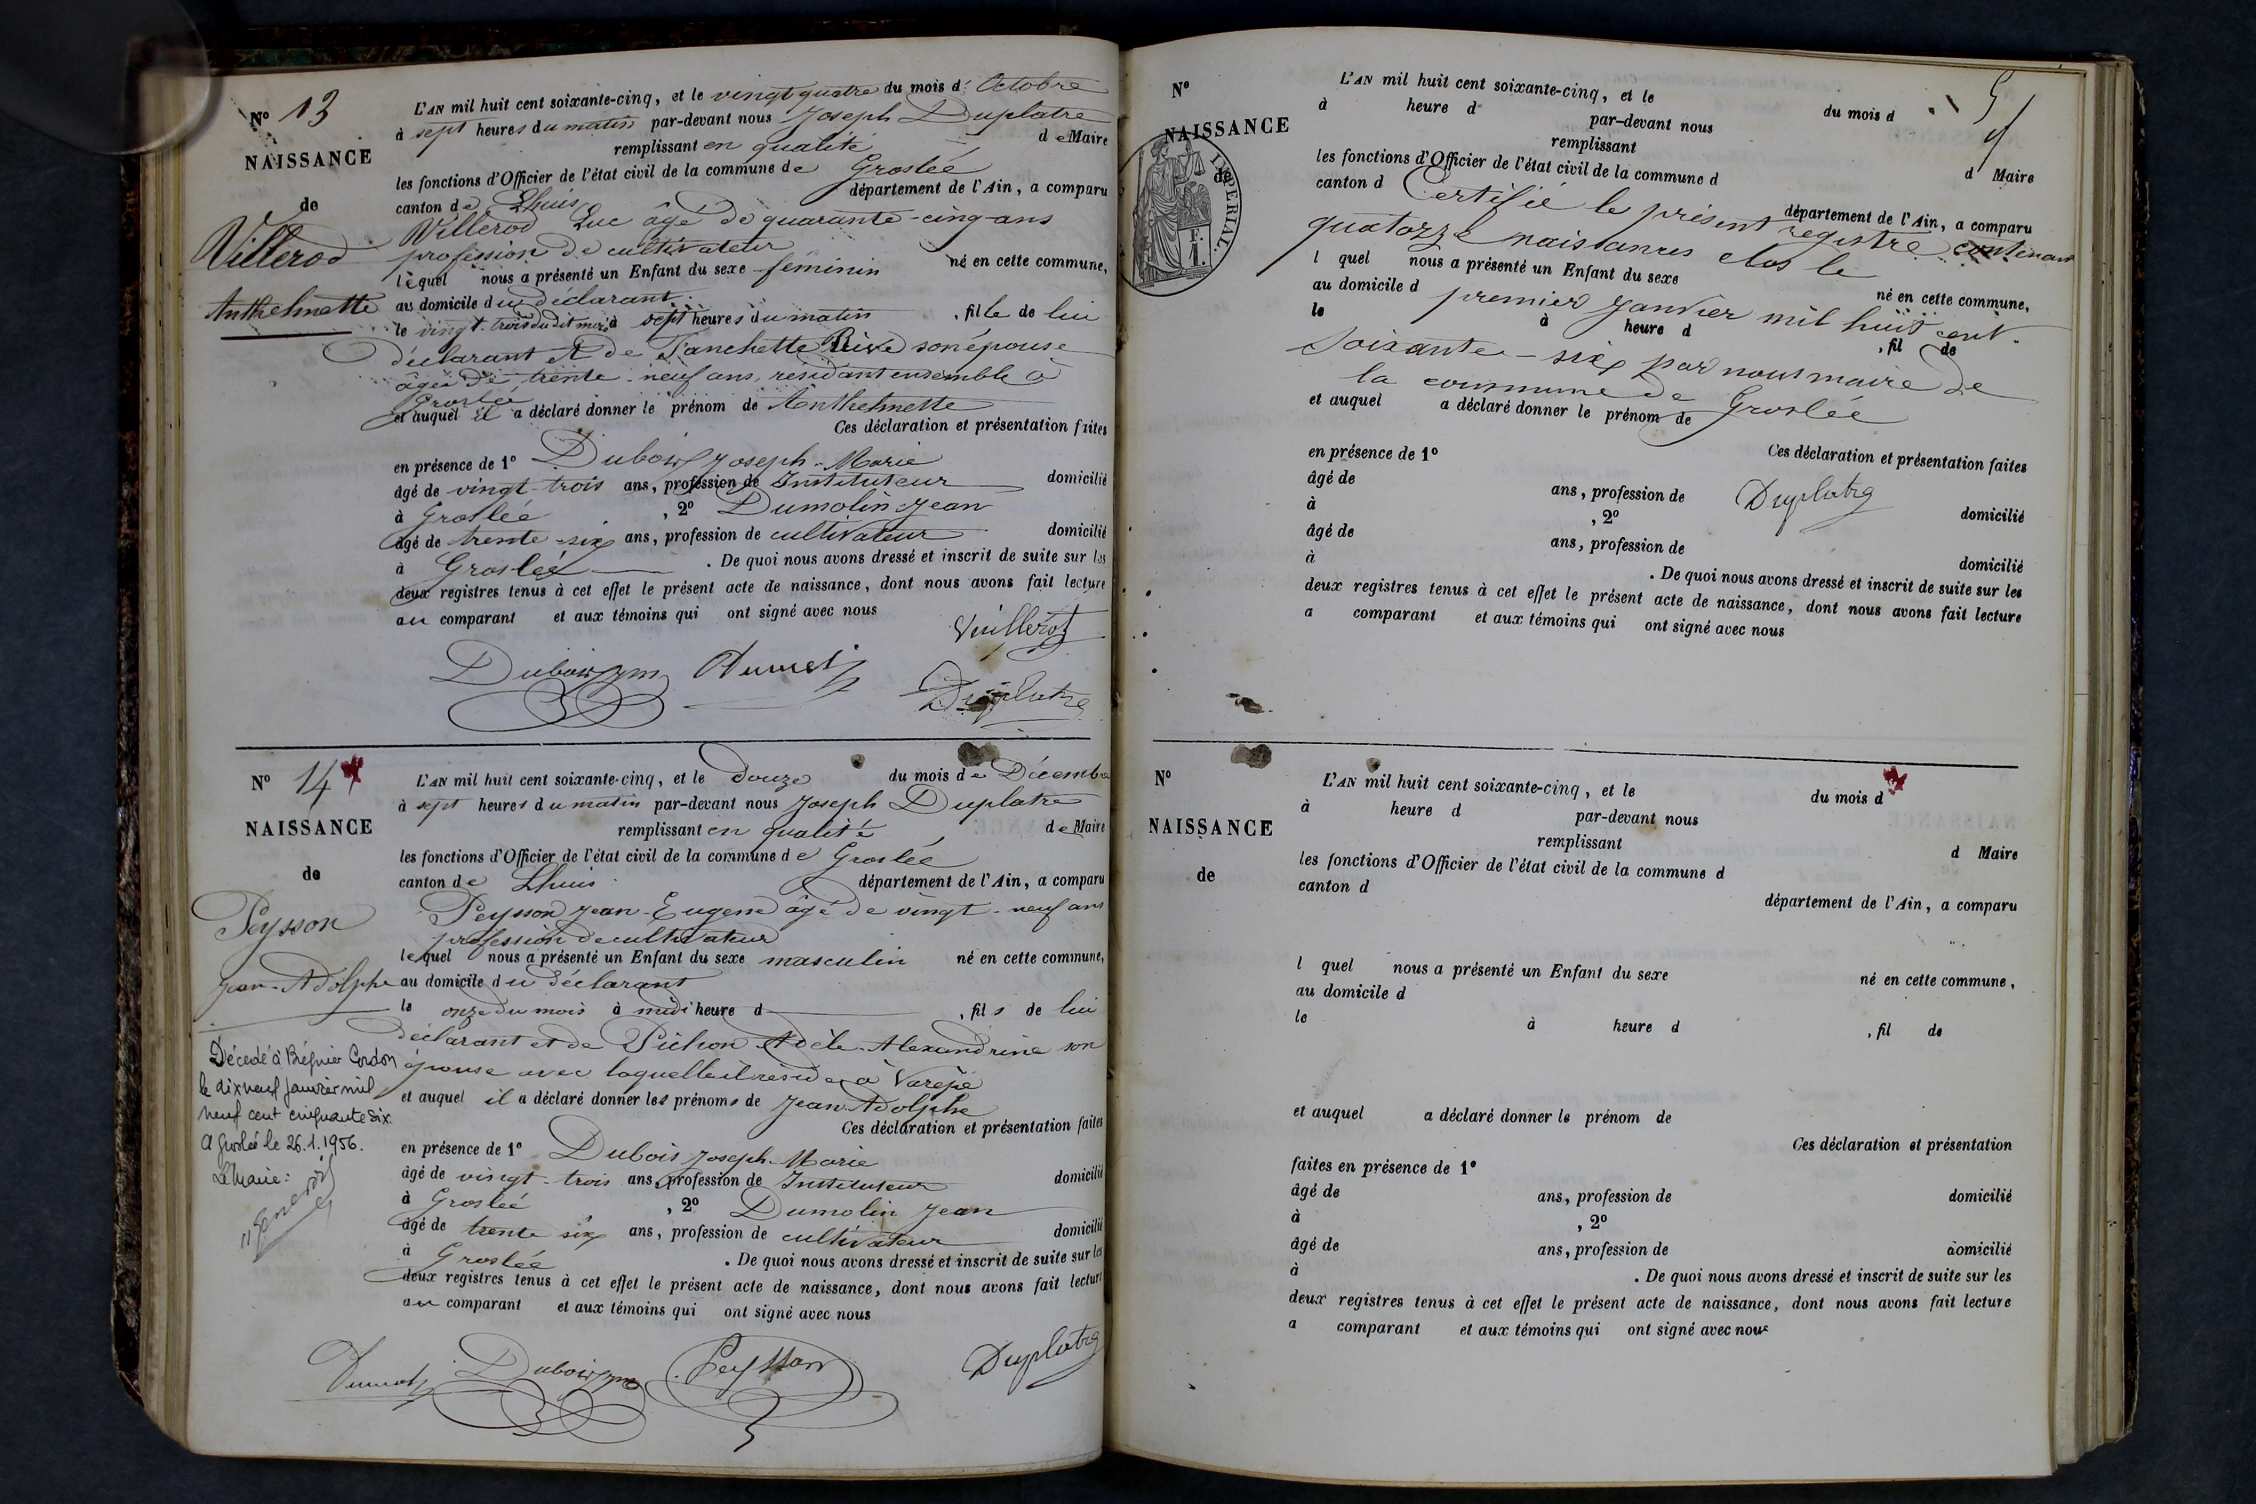 N° 13
NAISSANCE
de
Villerod
Anthelmette
L'AN mil huit cent soixante-cinq, et le vingt quatre du mois d' Octobre
à sept heures du matin par-devant nous Joseph Duplatre
remplissant en qualité de Maire
les fonctions d'Officier de l'état civil de la commune de Groslée
canton de Lhuis département de l'Ain, a comparu
Villerod Luc âgé de quarante-cinq ans
profession de cultivateur
lequel nous a présenté un Enfant du sexe féminin né en cette commune,
au domicile du déclarant
le vingt-trois du dit mois à sept heures du matin, fille de lui
déclarant et de Panchette son épouse
âgée de trente-neuf ans, résidant ensemble à
Groslée
et auquel il a déclaré donner le prénom de Anthelmette
Ces déclaration et présentation faites
en présence de 1° Dubois Joseph-Marie
âgé de vingt-trois ans, profession de Instituteur domicilié
à Groslée, 2° Dumolin Jean
âgé de trente-six ans, profession de cultivateur domicilié
à Groslée. De quoi nous avons dressé et inscrit de suite sur les
deux registres tenus à cet effet le présent acte de naissance, dont nous avons fait lecture
au comparant et aux témoins qui ont signé avec nous
Vuillerot
Dubois jm
Duplatre
N° 14
NAISSANCE
de
Peysson
Jean-Adolphe
Décédé à Brégnier Cordon
le dix neuf Janvier mil
neuf cent cinquante six.
A Groslée le 26.1.1956.
Le Maire:
L'AN mil huit cent soixante-cinq, et le douze du mois de Décembre
à sept heures du matin par-devant nous Joseph Duplatre
remplissant en qualité de Maire
les fonctions d'Officier de l'état civil de la commune de Groslée
canton de Lhuis département de l'Ain, a comparu
Peysson Jean-Eugene âgé de vingt-neuf ans
profession de cultivateur
lequel nous a présenté un Enfant du sexe masculin né en cette commune,
au domicile du déclarant
le onze du mois à midi heure d, fils de lui
déclarant et de Pichon Adèle-Alexandrine son
épouse avec laquelle il réside à Varepe
et auquel il a déclaré donner les prénoms de Jean-Adolphe
Ces déclaration et présentation faites
en présence de 1° Dubois Joseph-Marie
âgé de vingt-trois ans, profession de Instituteur domicilié
à Groslée, 2° Dumolin Jean
âgé de trente six ans, profession de cultivateur domicilié
à Groslée. De quoi nous avons dressé et inscrit de suite sur les
deux registres tenus à cet effet le présent acte de naissance, dont nous avons fait lecture
au comparant et aux témoins qui ont signé avec nous
Dubois jm
Peysson
Duplatre
N°
NAISSANCE
de
IMPERIAL.
L'AN mil huit cent soixante-cinq, et le du mois d
à heure d par-devant nous
remplissant d Maire
les fonctions d'Officier de l'état civil de la commune d
canton d département de l'Ain, a comparu
Certifié le présent registre contenant
quatorze naissances clos le
l quel nous a présenté un Enfant du sexe né en cette commune,
au domicile d
premier Janvier mil huit cent
le à heure d, fil de
soixante-six par nous maire de
la commune de Groslée
et auquel a déclaré donner le prénom de
Ces déclaration et présentation faites
en présence de 1°
âgé de ans, profession de domicilié
Duplatre
à , 2°
âgé de ans, profession de domicilié
à . De quoi nous avons dressé et inscrit de suite sur les
deux registres tenus à cet effet le présent acte de naissance, dont nous avons fait lecture
a comparant et aux témoins qui ont signé avec nous
N°
NAISSANCE
de
L'AN mil huit cent soixante-cinq, et le du mois d
à heure d par-devant nous
remplissant d Maire
les fonctions d'Officier de l'état civil de la commune d
canton d département de l'Ain, a comparu
l quel nous a présenté un Enfant du sexe né en cette commune,
au domicile d
le à heure d, fil de
et auquel a déclaré donner le prénom de
Ces déclaration et présentation
faites en présence de 1°
âgé de ans, profession de domicilié
à , 2°
âgé de ans, profession de domicilié
à . De quoi nous avons dressé et inscrit de suite sur les
deux registres tenus à cet effet le présent acte de naissance, dont nous avons fait lecture
a comparant et aux témoins qui ont signé avec nous